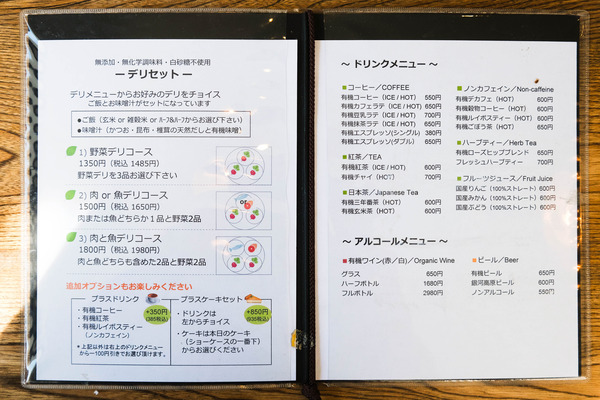 無添加・無化学調味料・白砂糖不使用
ー デリセット ー
デリメニューからお好みのデリをチョイス
ご飯とお味噌汁がセットになっています
●ご飯（玄米 or 雑穀米 or ﾊｰﾌ&ﾊｰﾌからお選び下さい）
●味噌汁（かつお・昆布・椎茸の天然だしと有機味噌）
1）野菜デリコース
1350円（税込 1485円）
野菜デリを3品お選び下さい
2）肉 or 魚デリコース
1500円（税込 1650円）
肉または魚どちらか１品と野菜2品
or
3）肉と魚デリコース
1800円（税込 1980円）
肉と魚どちらも含めた2品と野菜2品
追加オプションもお楽しみください
プラスドリンク
+350円
(385税込)
・有機コーヒー
・有機紅茶
・有機ルイボスティー
（ノンカフェイン）
＊上記以外は右上のドリンクメニュー
から一100円引きでお選び頂けます。
プラスケーキセット
+850円
(935税込)
・ドリンクは
左からチョイス
・ケーキは本日のケーキ
（ショーケースの一番下）
からお選びください
～ ドリンクメニュー ～
■コーヒー／COFFEE
有機コーヒー（ICE / HOT） 550円
有機カフェラテ（ICE / HOT） 650円
有機豆乳ラテ（ICE / HOT） 700円
有機抹茶ラテ（ICE / HOT） 650円
有機エスプレッソ(シングル) 380円
有機エスプレッソ(ダブル) 650円
■紅茶／TEA
有機紅茶（ICE / HOT） 600円
有機チャイ（HOT） 700円
■日本茶／Japanese Tea
有機三年番茶（HOT） 600円
有機玄米茶（HOT） 600円
■ノンカフェイン／Non-caffeine
有機デカフェ（HOT） 600円
有機穀物コーヒー（HOT） 600円
有機ルイボスティー（HOT） 600円
有機ごぼう茶（HOT） 650円
■ハーブティー／Herb Tea
有機ローズヒップブレンド 650円
フレッシュハーブティー 700円
■フルーツジュース／Fruit Juice
国産りんご（100%ストレート）600円
国産みかん（100%ストレート）600円
国産ぶどう（100%ストレート）600円
～ アルコールメニュー ～
■有機ワイン(赤／白)／Organic Wine
グラス 650円
ハーフボトル 1680円
フルボトル 2980円
■ビール／Beer
有機ビール 650円
銀河高原ビール 600円
ノンアルコール 550円